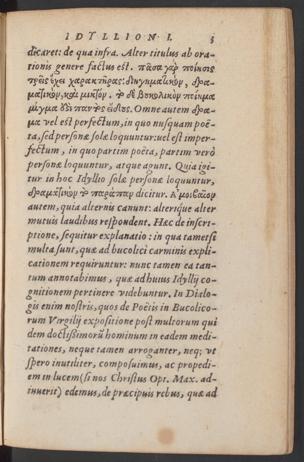 IDYLLION. I. 5
dicaret: de qua infra. Alter titulus ab ora-
tionis genere factus est. πᾶσα γὰρ ποίησις
τρεῖς ἔχει χαρακτῆρας: διηγηματικὸν, δρα-
ματικὸν, καὶ μικτὸν. τὸ δὲ βουκολικὸν ποίημα
μίγμα ἐστὶ παντὸς εἴδους. Omne autem dra-
ma vel est perfectum, in quo nusquam poë-
ta, sed personæ solæ loquuntur: vel est imper-
fectum, in quo partim poëta, partim verò
personæ loquuntur, atque agunt. Quia igi-
tur in hoc Idyllio solæ personæ loquuntur,
δραματικὸν τὸ dicitur. Ἀμοιβαῖον
autem, quia alternis canunt: alterique alter
mutuis laudibus respondent. Hæc de inscri-
ptione, sequitur explanatio: in qua tametsi
multa sunt, quæ ad bucolici carminis expli-
cationem requiruntur: nunc tamen ea tan-
tum annotabimus, quæ ad huius Idyllij co-
gnitionem pertinere videbuntur. In Dialo-
gis enim nostris, quos de Poëtis in Bucolico-
rum Vergilij expositione post multorum qui
dem doctissimorū hominum in eadem medi-
tationes, neque tamen arroganter, neq; vt
spero inutiliter, composuimus, ac propedi-
em in lucem (si nos Christus Opt. Max. ad-
iuuerit) edemus, de præcipuis rebus, quæ ad